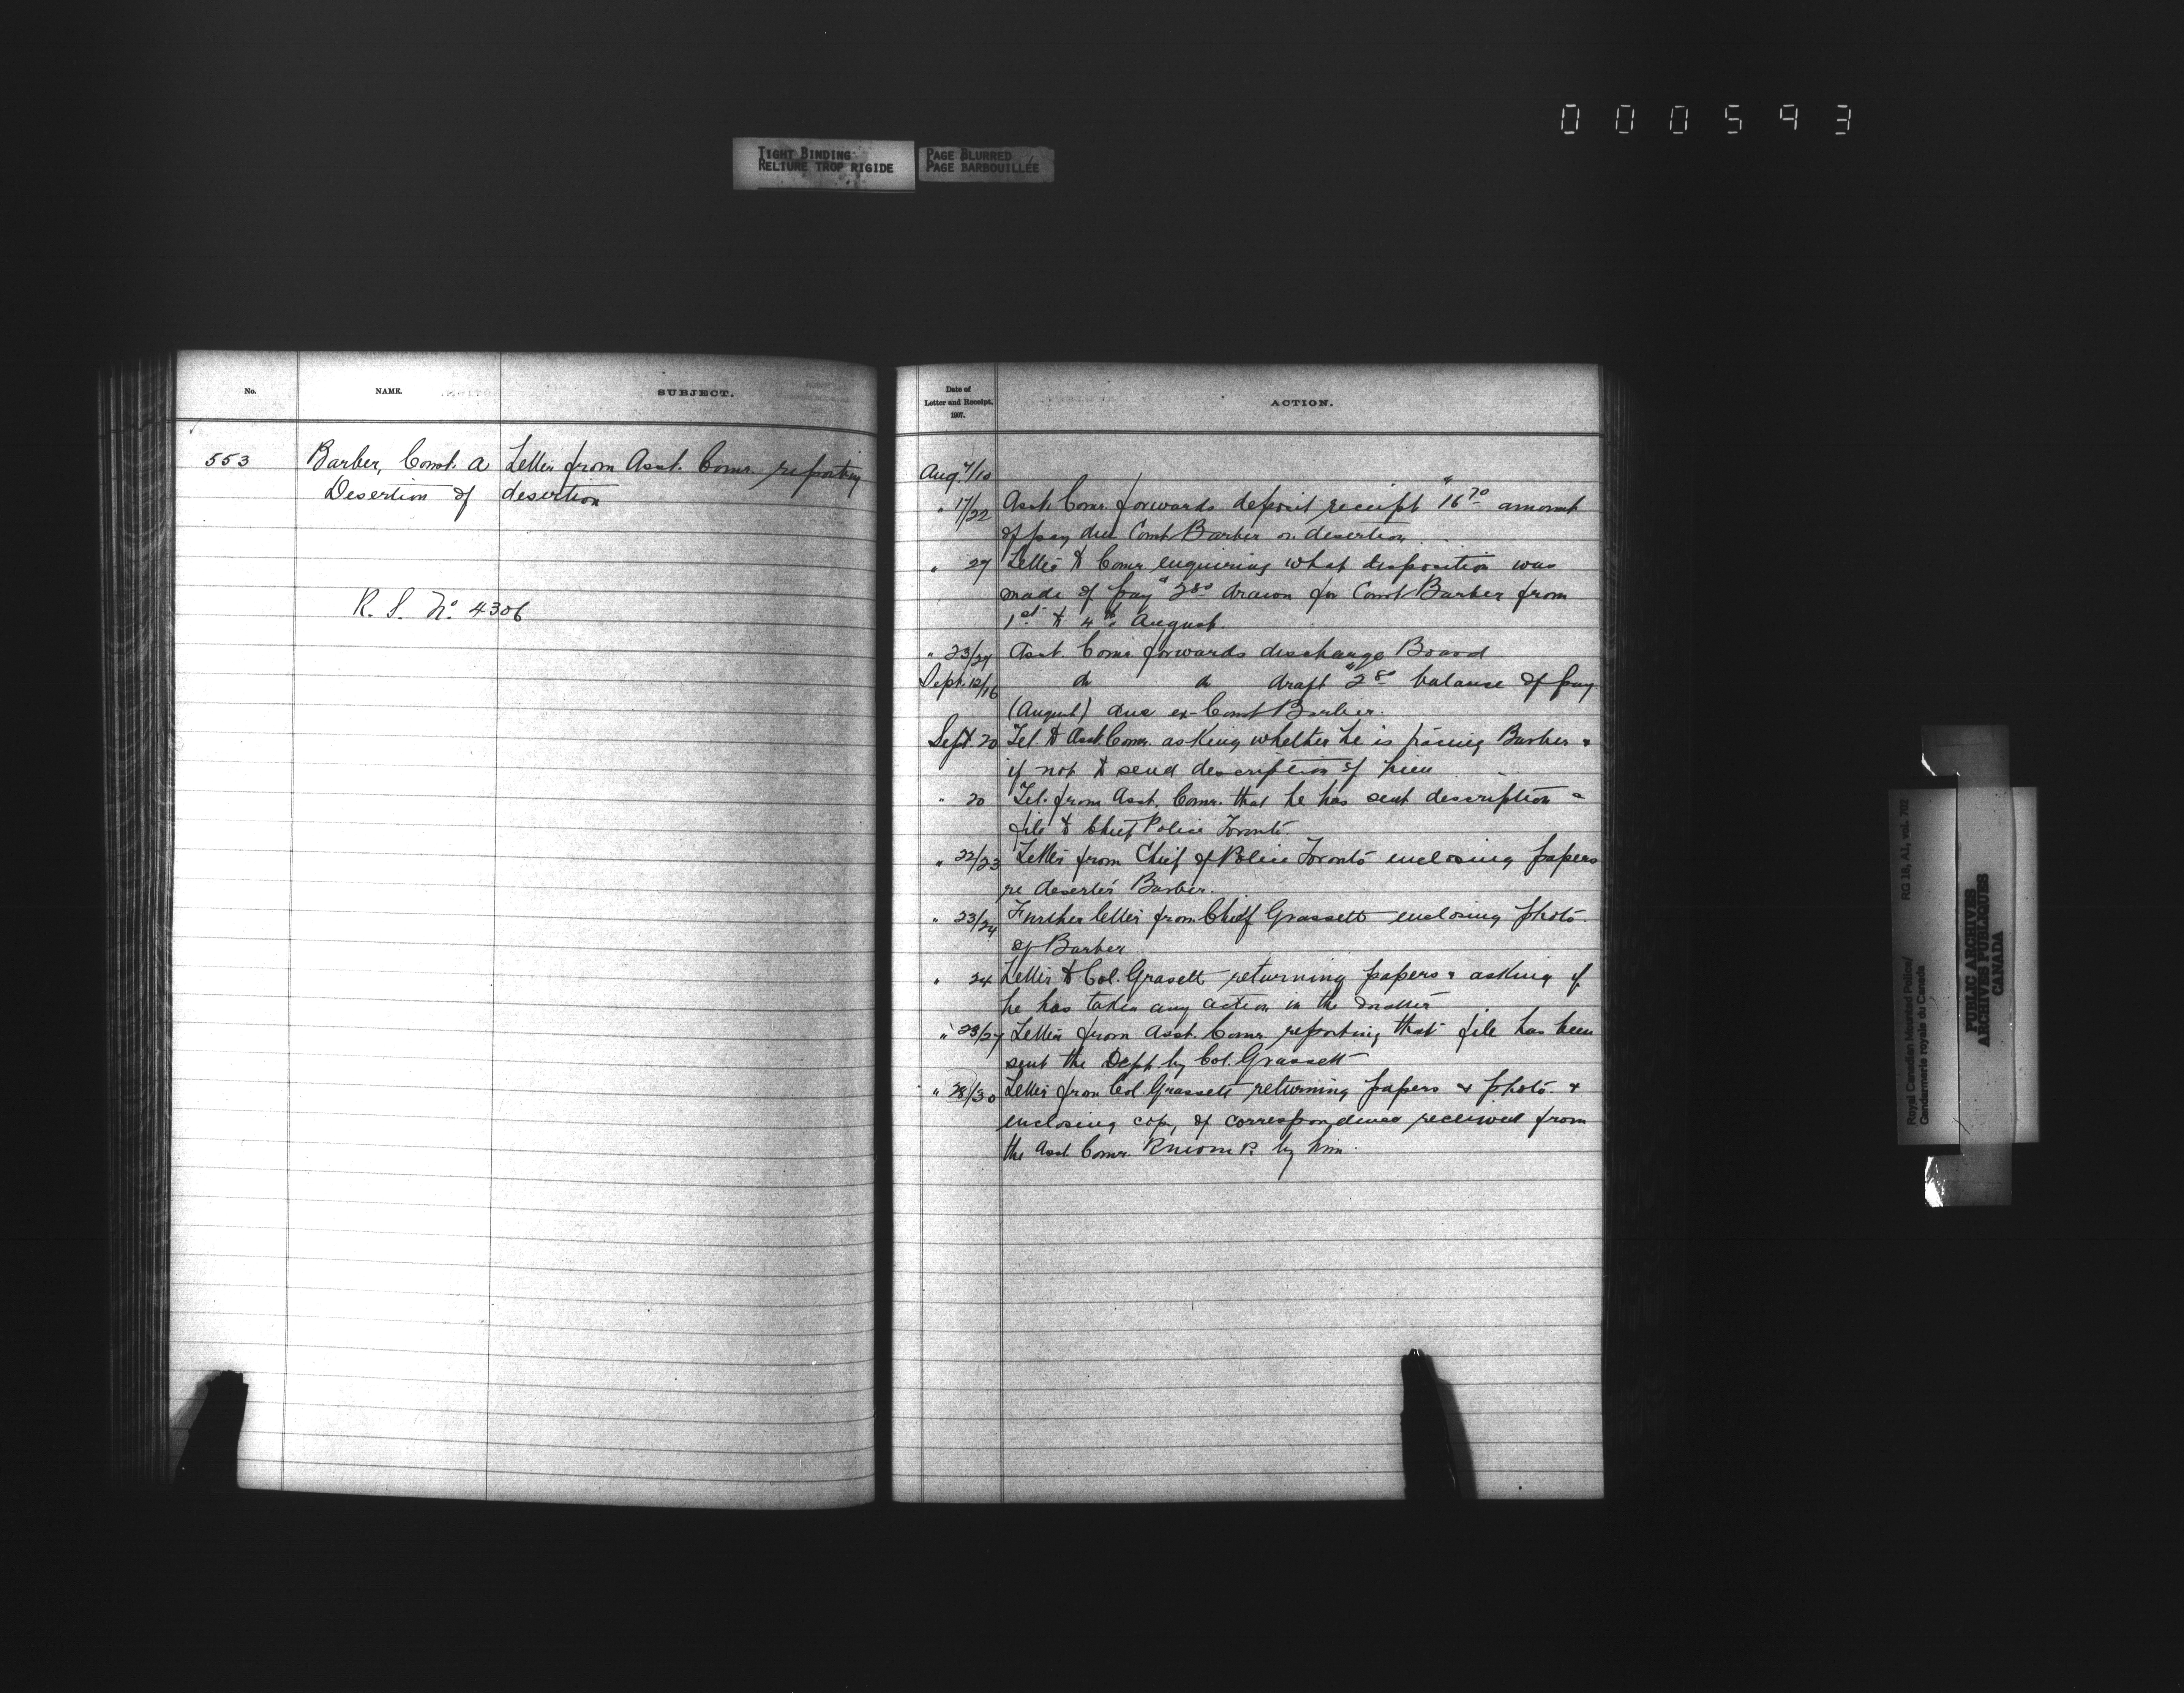 000593
TIGHT BINDING
RELIURE TROP RIGIDE
PAGE BLURRED
PAGE BARBOUILLÉE
No.
NAME.
SUBJECT.
553
Barber, Const. A Letter from Asst. Comr. reporting
Desertion of desertion
R. S. No. 4306
Date of
Letter and Receipt,
1907.
ACTION.
Aug. 7/10
" 17/22 Asst. Comr. forwards deposit receipt $16 70 amount
of pay due Const Barber on desertion.
" 27 Letter to Comr. enquiring what disposition was
made of pay $2 80 drawn for Const Barber from
1st to 4th August.
" 23/27 Asst. Comr. forwards discharge Board
Sept. 12/16 do do draft $2 80 balance of pay
(August) due ex-Const Barber.
Sept. 20 Tel. to Asst. Comr. asking whether he is Barber &
if not to send description of him
" 20 Tel. from Asst. Comr. that he has sent description &
file to Chief Police Toronto.
" 22/23 Letter from Chief of Police Toronto enclosing papers
re deserter Barber.
" 23/24 Further letter from Chief Grassett enclosing photo.
of Barber
" 24 Letter to Col. Grasett returning papers & asking if
he has taken any action in the matter
" 23/27 Letter from Asst. Comr. reporting that file has been
sent the Dept. by Col. Grassett
" 28/30 Letter from Col. Grassett returning papers & photo. &
enclosing copy of correspondence received from
the Asst. Comr. RNWMP. by him.
Royal Canadian Mounted Police/
Gendarmerie royale du Canada
RG 18, A1, vol. 702
PUBLIC ARCHIVES
ARCHIVES PUBLIQUES
CANADA